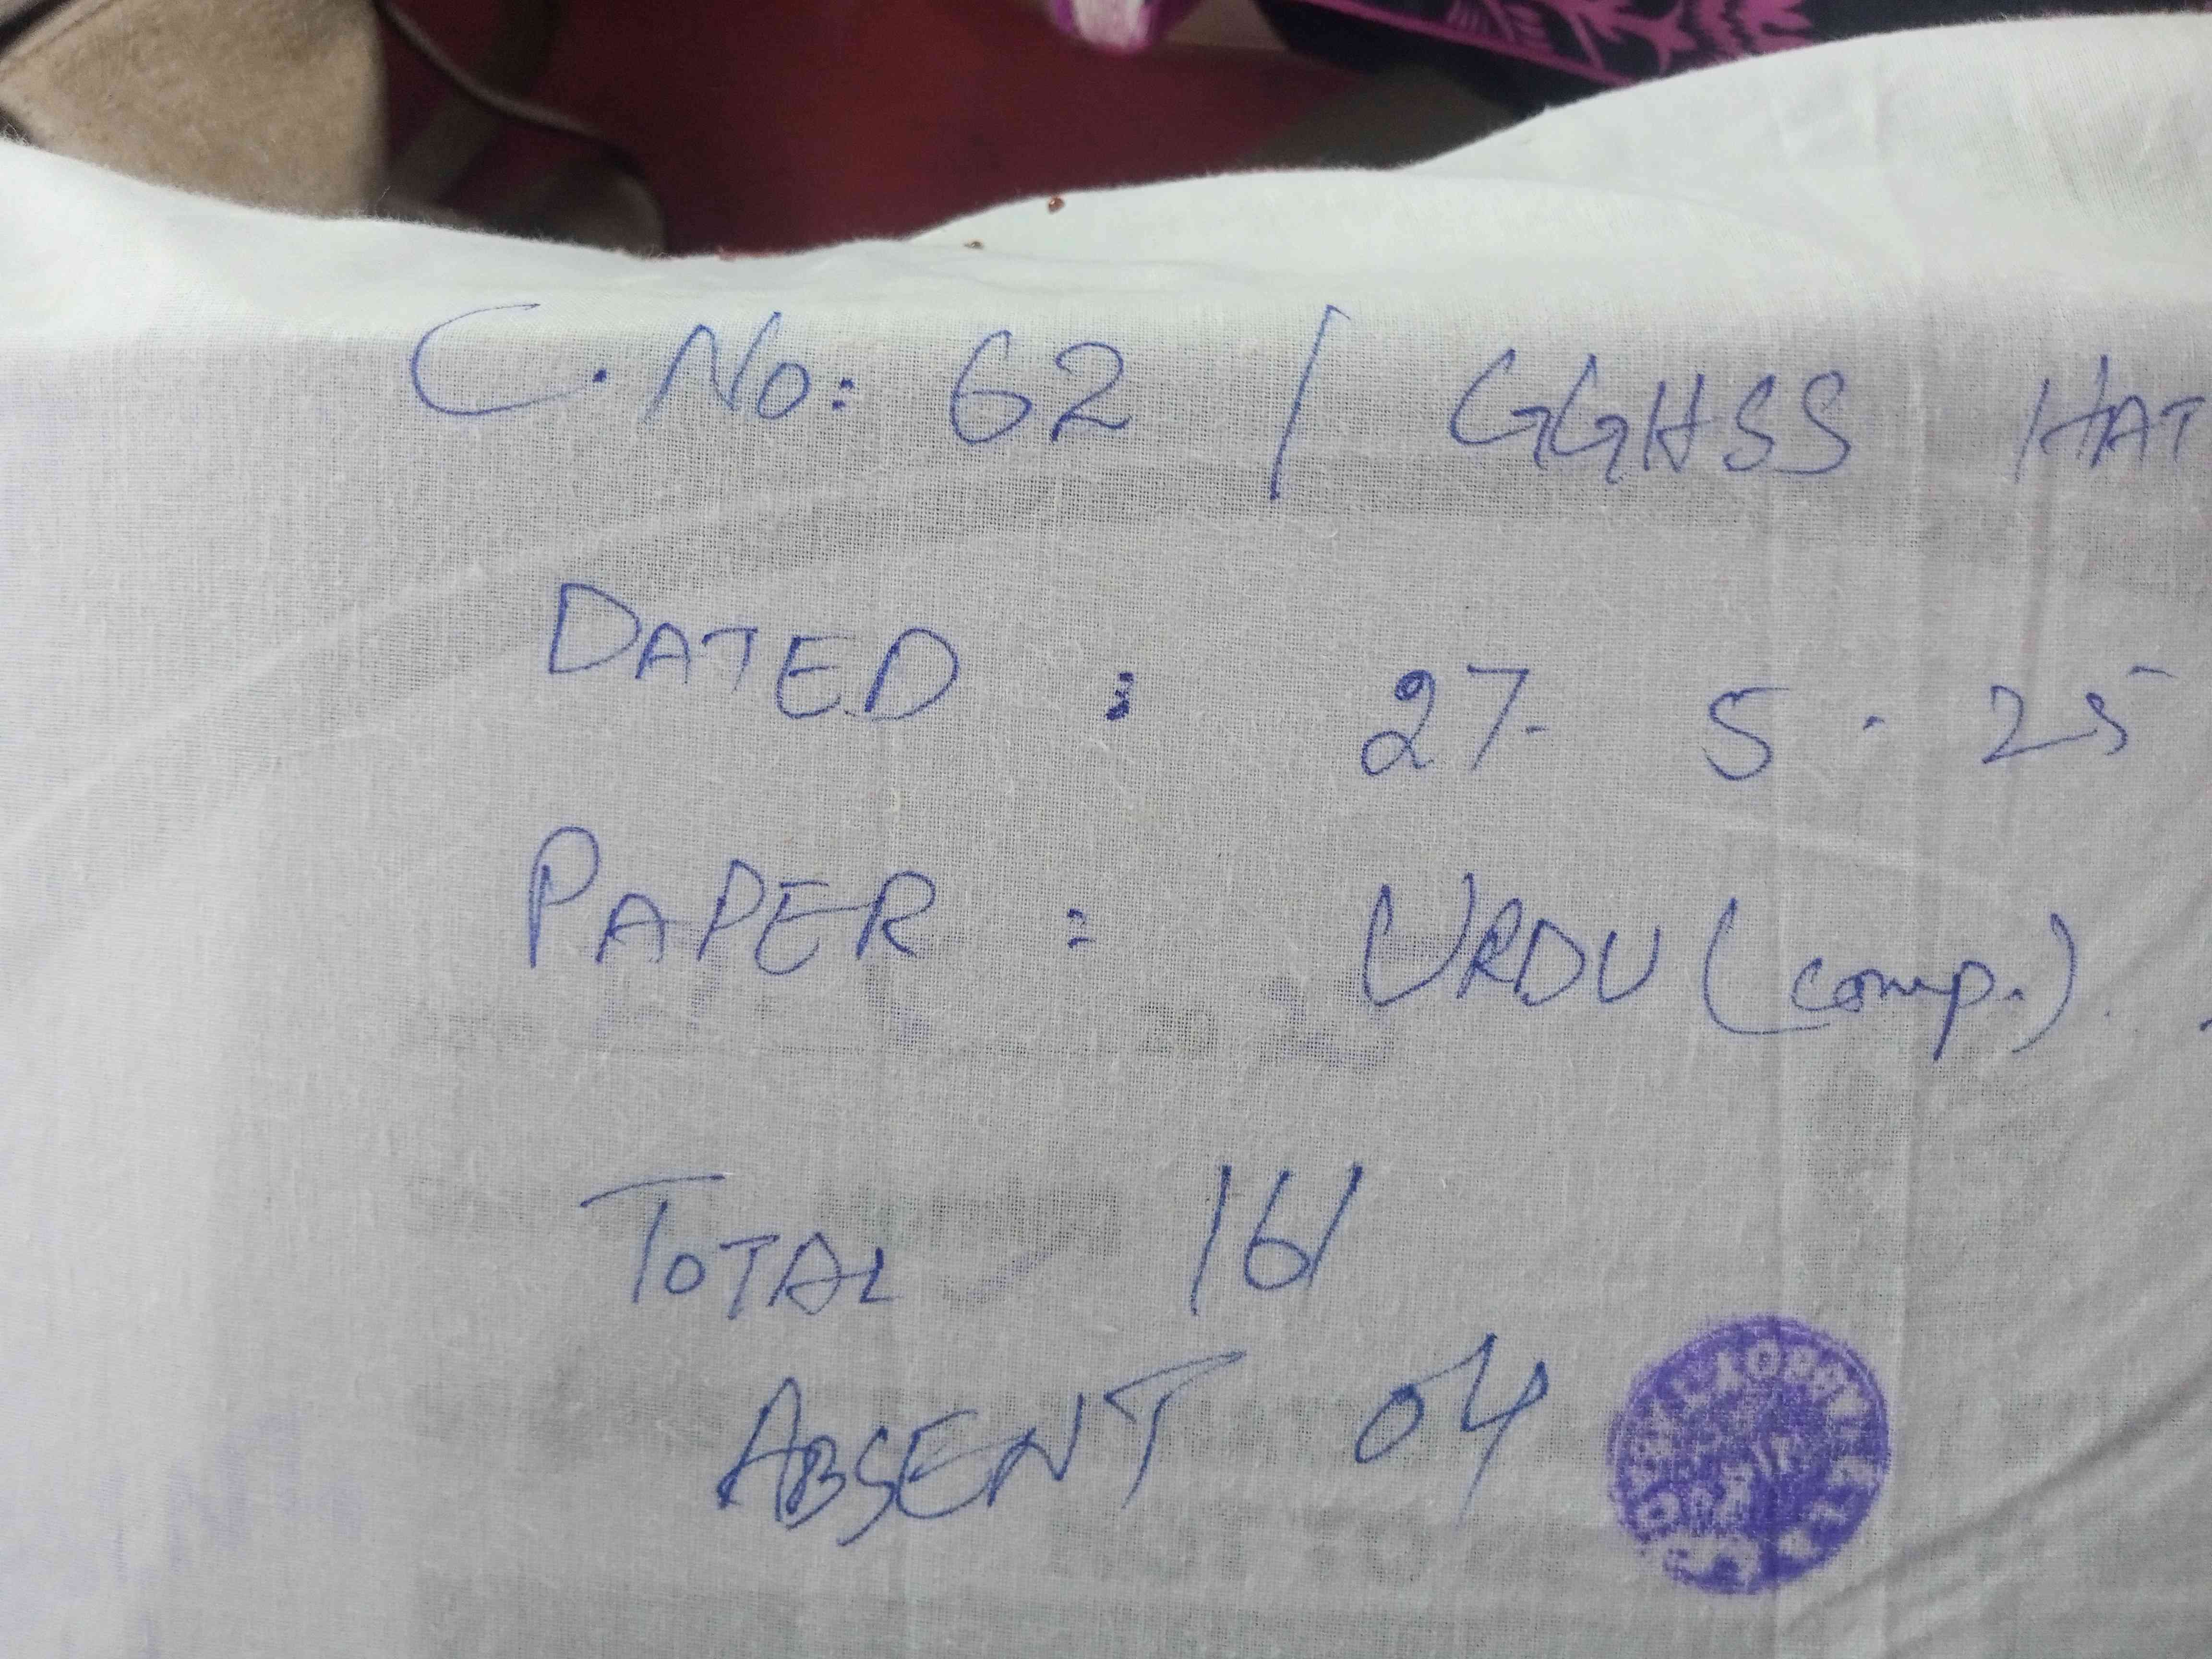 C. No: 62 / GGHSS HAT
DATED : 27. 5. 25
PAPER : URDU (comp.)
TOTAL 161
ABSENT 04